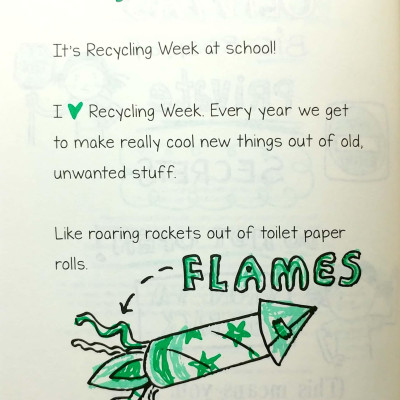 It's Recycling Week at school!
I ♥ Recycling Week. Every year we get
to make really cool new things out of old,
unwanted stuff.
Like roaring rockets out of toilet paper
rolls.
FLAMES